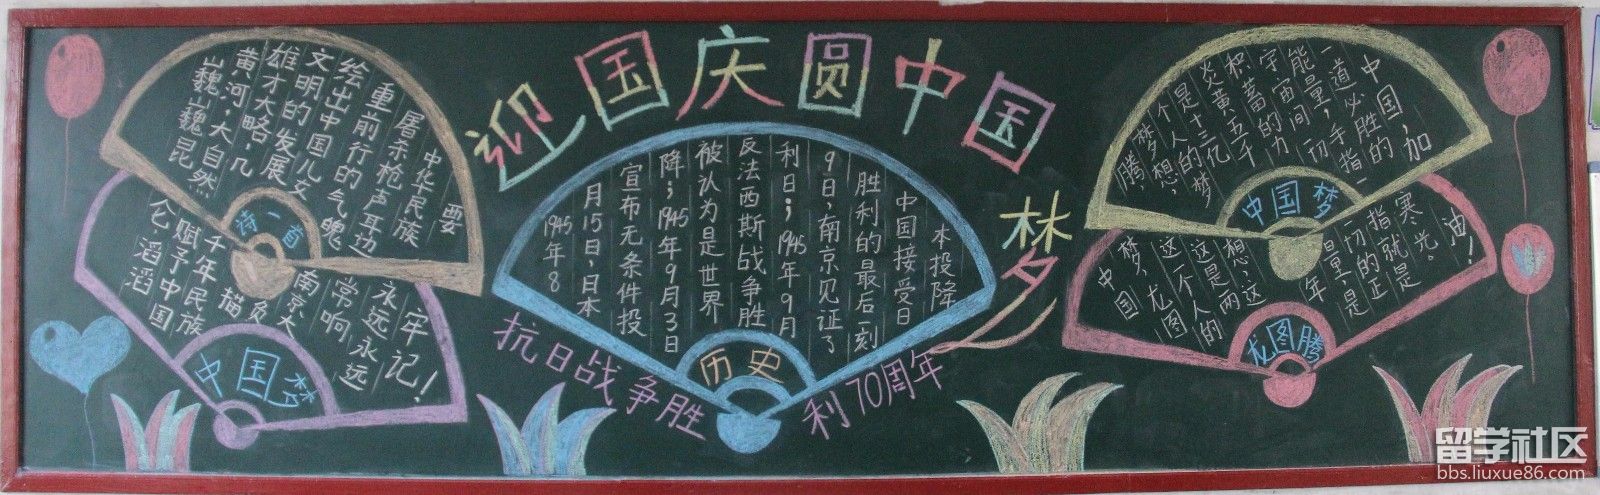 迎国庆圆中国梦
巍巍昆
仑,滔滔
黄河,大自然
赋予中国
雄才大略,几
千年民族
文明的发展
描
绘出中国儿女
负
重前行的气魄
南京大
屠杀枪声耳边
常响
中华民族
永远永远
要
牢记!
诗一首
中国梦
1945年8
月15日,日本
宣布无条件投
降;1945年9月3日
被认为是世界
反法西斯战争胜
利日;1945年9月
9日,南京见证了
胜利的最后一刻
中国接受日
本投降
历史
抗日战争胜利70周年
中国
梦,龙图
腾,
这一个人的
梦想,
这是两
个人的梦
想;这
是十三亿
炎黄五千
年
积蓄的力
量;是
宇宙间
一切的正
能量,手指一
指就是
一道必胜的
寒光。
中国,加
油!
中国梦
龙图腾
留学社区
bbs.liuxue86.com